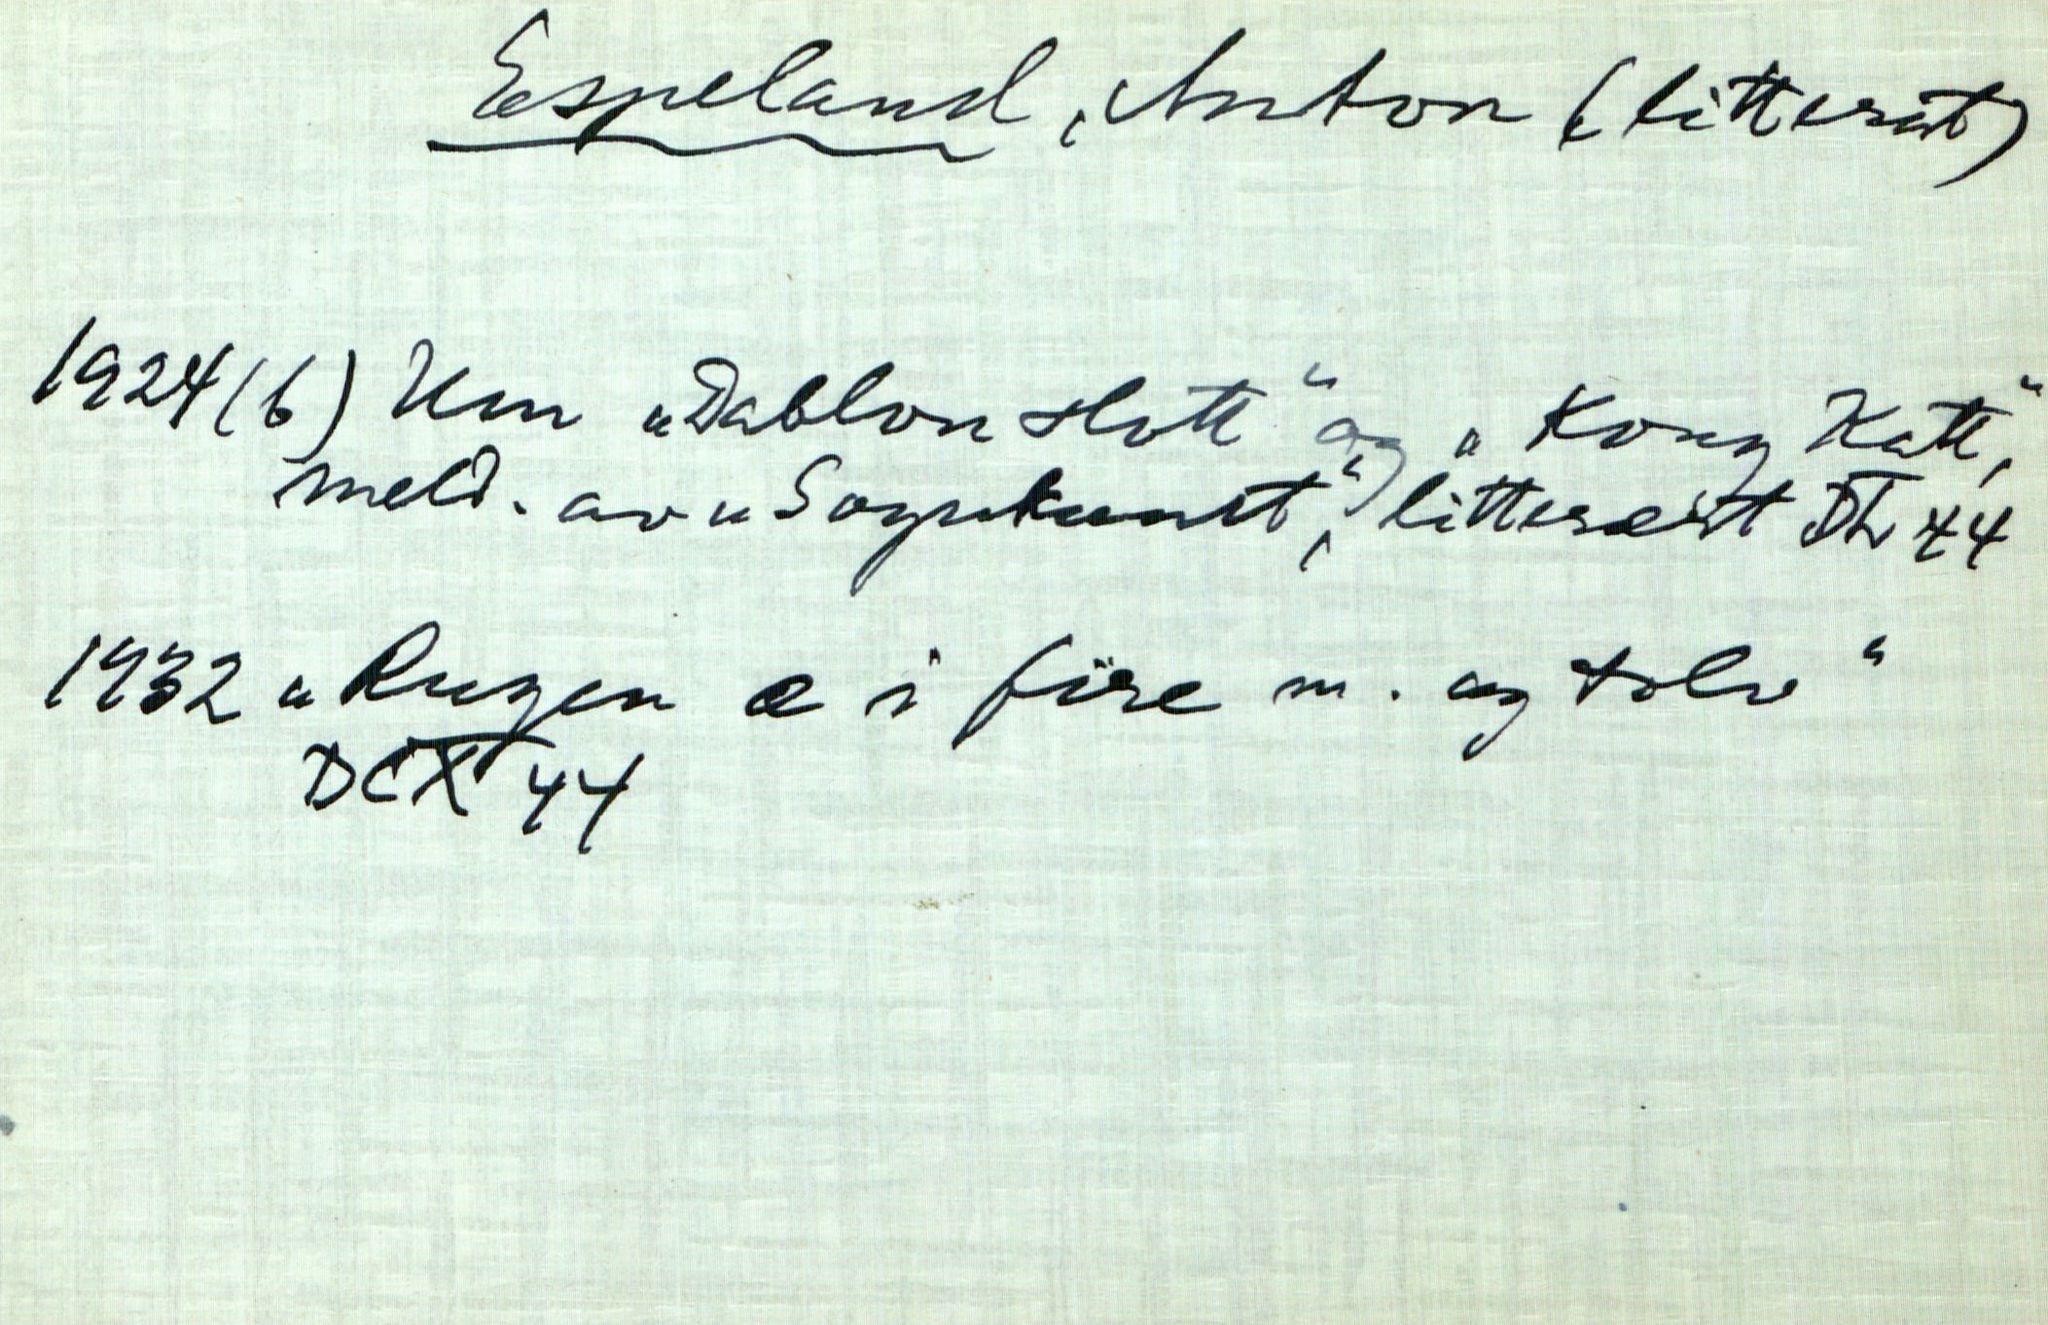 Espeland, Anton (litterat)
1924(6) Um „Dablon slott“ og „Kong Katt“,
meld. av „Sogukunst“, litterært DTv 44
1932 „Rugen e i fire m. og tolv“
DCX 44